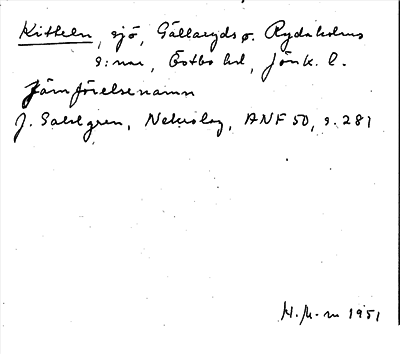 Kitteln, sjö, Gällaryds o. Rydaholms
s:nar, Östbo hd, Jönk. l.
Jämförelsenamn
J. Sahlgren, Nekrolog, ANF 50, s. 281
H. M-m 1951